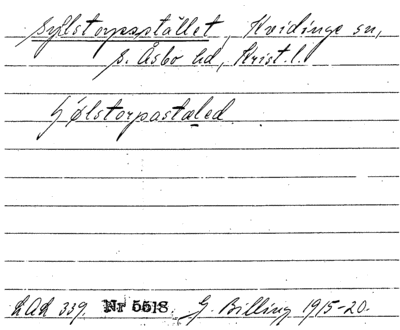 Sylstorpsstället, Kvidinge sn,
S. Åsbo hd, Krist. l.
Gjølstorpastæled.
LAL 339. Nr 5518. G. Billing 1915-20.